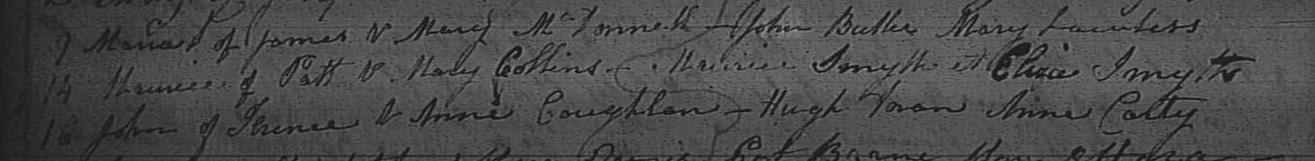 9 Maria of James & Mary McDonnell - John Butler Mary Saunders
14 Maurice of Patt & Mary Collins - Maurice Smyth et Eliza Smyth
16 John of Terence & Anne Coughlan - Hugh Doran Anne Carty